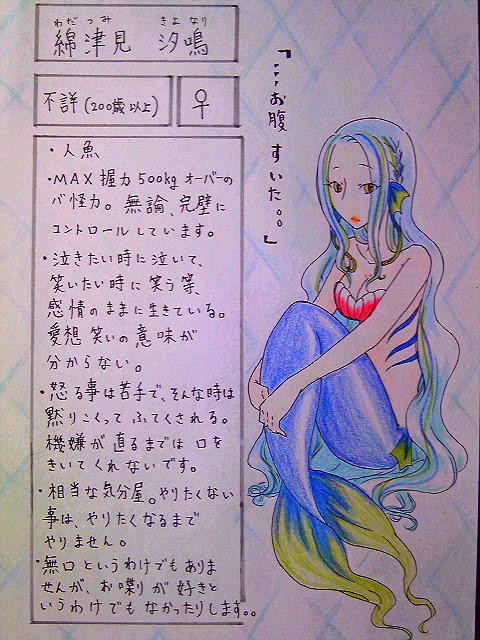 わだつみ きよなり
綿津見 汐鳴
不詳(200歳以上) ♀
『…お腹すいた。。』
・人魚
・MAX握力500kgオーバーの
バ怪力。無論、完璧に
コントロールしています。
・泣きたい時に泣いて、
笑いたい時に笑う等、
感情のままに生きている。
愛想笑いの意味が
分からない。
・怒る事は苦手で、そんな時は
黙りこくってふてくされる。
機嫌が直るまでは口を
きいてくれないです。
・相当な気分屋。やりたくない
事は、やりたくなるまで
やりません。
・無口というわけでもありま
せんが、お喋りが好きと
いうわけでもなかったりします。。